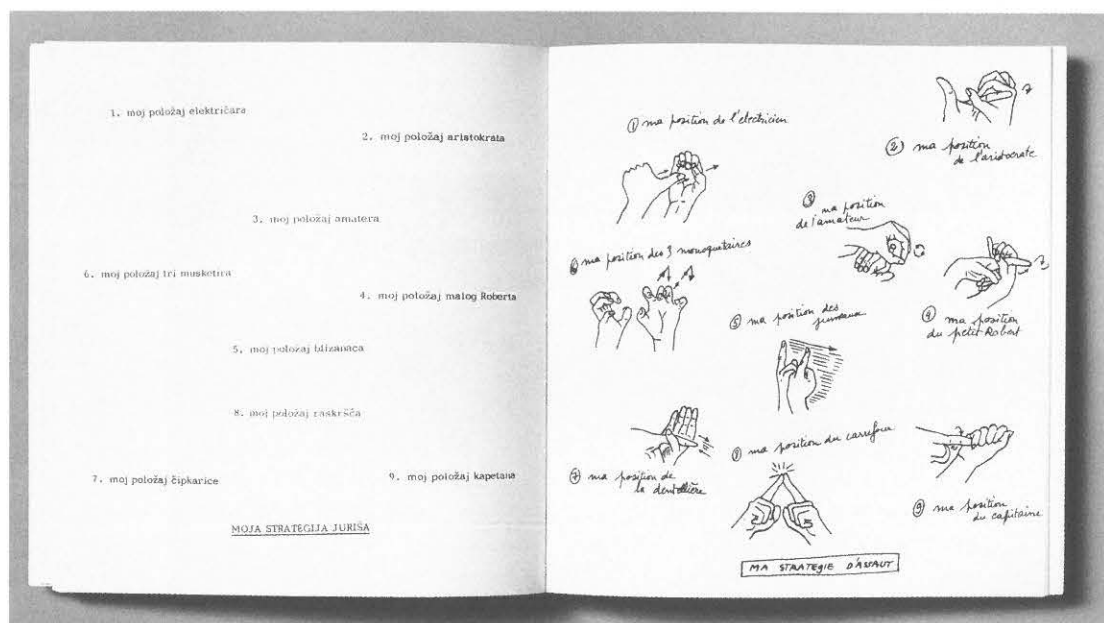 1. moj položaj električara
2. moj položaj aristokrata
3. moj položaj amatera
6. moj položaj tri musketira
4. moj položaj malog Roberta
5. moj položaj blizanaca
8. moj položaj raskršča
7. moj položaj čipkarice
9. moj položaj kapetana
MOJA STRATEGIJA JURIŠA
① ma position de l'electricien
② ma position
de l'aristocrate
③ ma position
de l'amateur
⑥ ma position des 3 mousquetaires
④ ma position
du petit Robert
⑤ ma position des
jumeaux
⑧ ma position du carrefour
⑦ ma position de
la dentellière
⑨ ma position
du capitaine
MA STRATEGIE D'ASSAUT